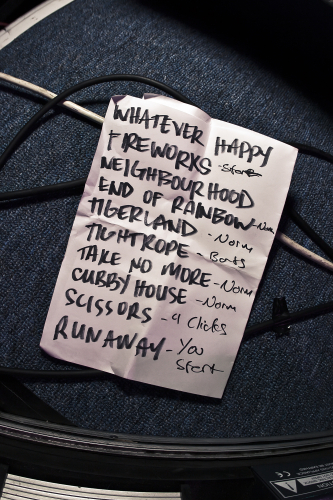 WHATEVER HAPPY
FIREWORKS - Start
NEIGHBOURHOOD
END OF RAINBOW - Norm
TIGERLAND - Norm
TIGHTROPE - Beats
TAKE NO MORE - Norm
CUBBY HOUSE - Norm
SCISSORS - 4 Clicks
RUNAWAY - You
Start